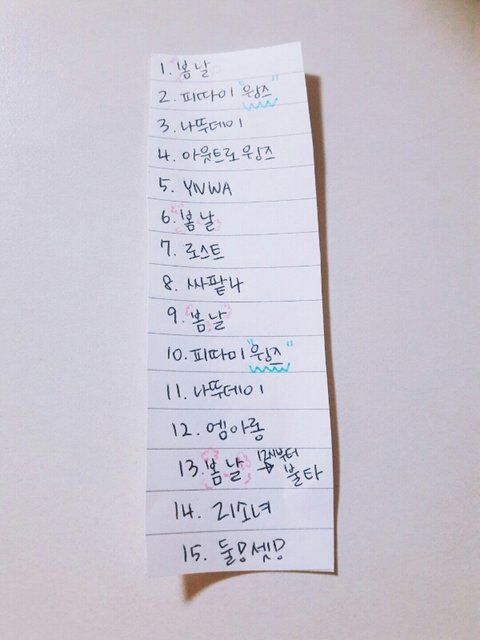 1. 봄날
2. 피땀미 "윙즈"
3. 나뚜데이
4. 아웃트로 윙즈
5. YNWA
6. 봄날
7. 로스트
8. 싸팥나
9. 봄날
10. 피땀미 "윙즈"
11. 나뚜데이
12. 엠아롱
13. 봄날 → 12시부터
불타
14. 21소녀
15. 둘!셋!